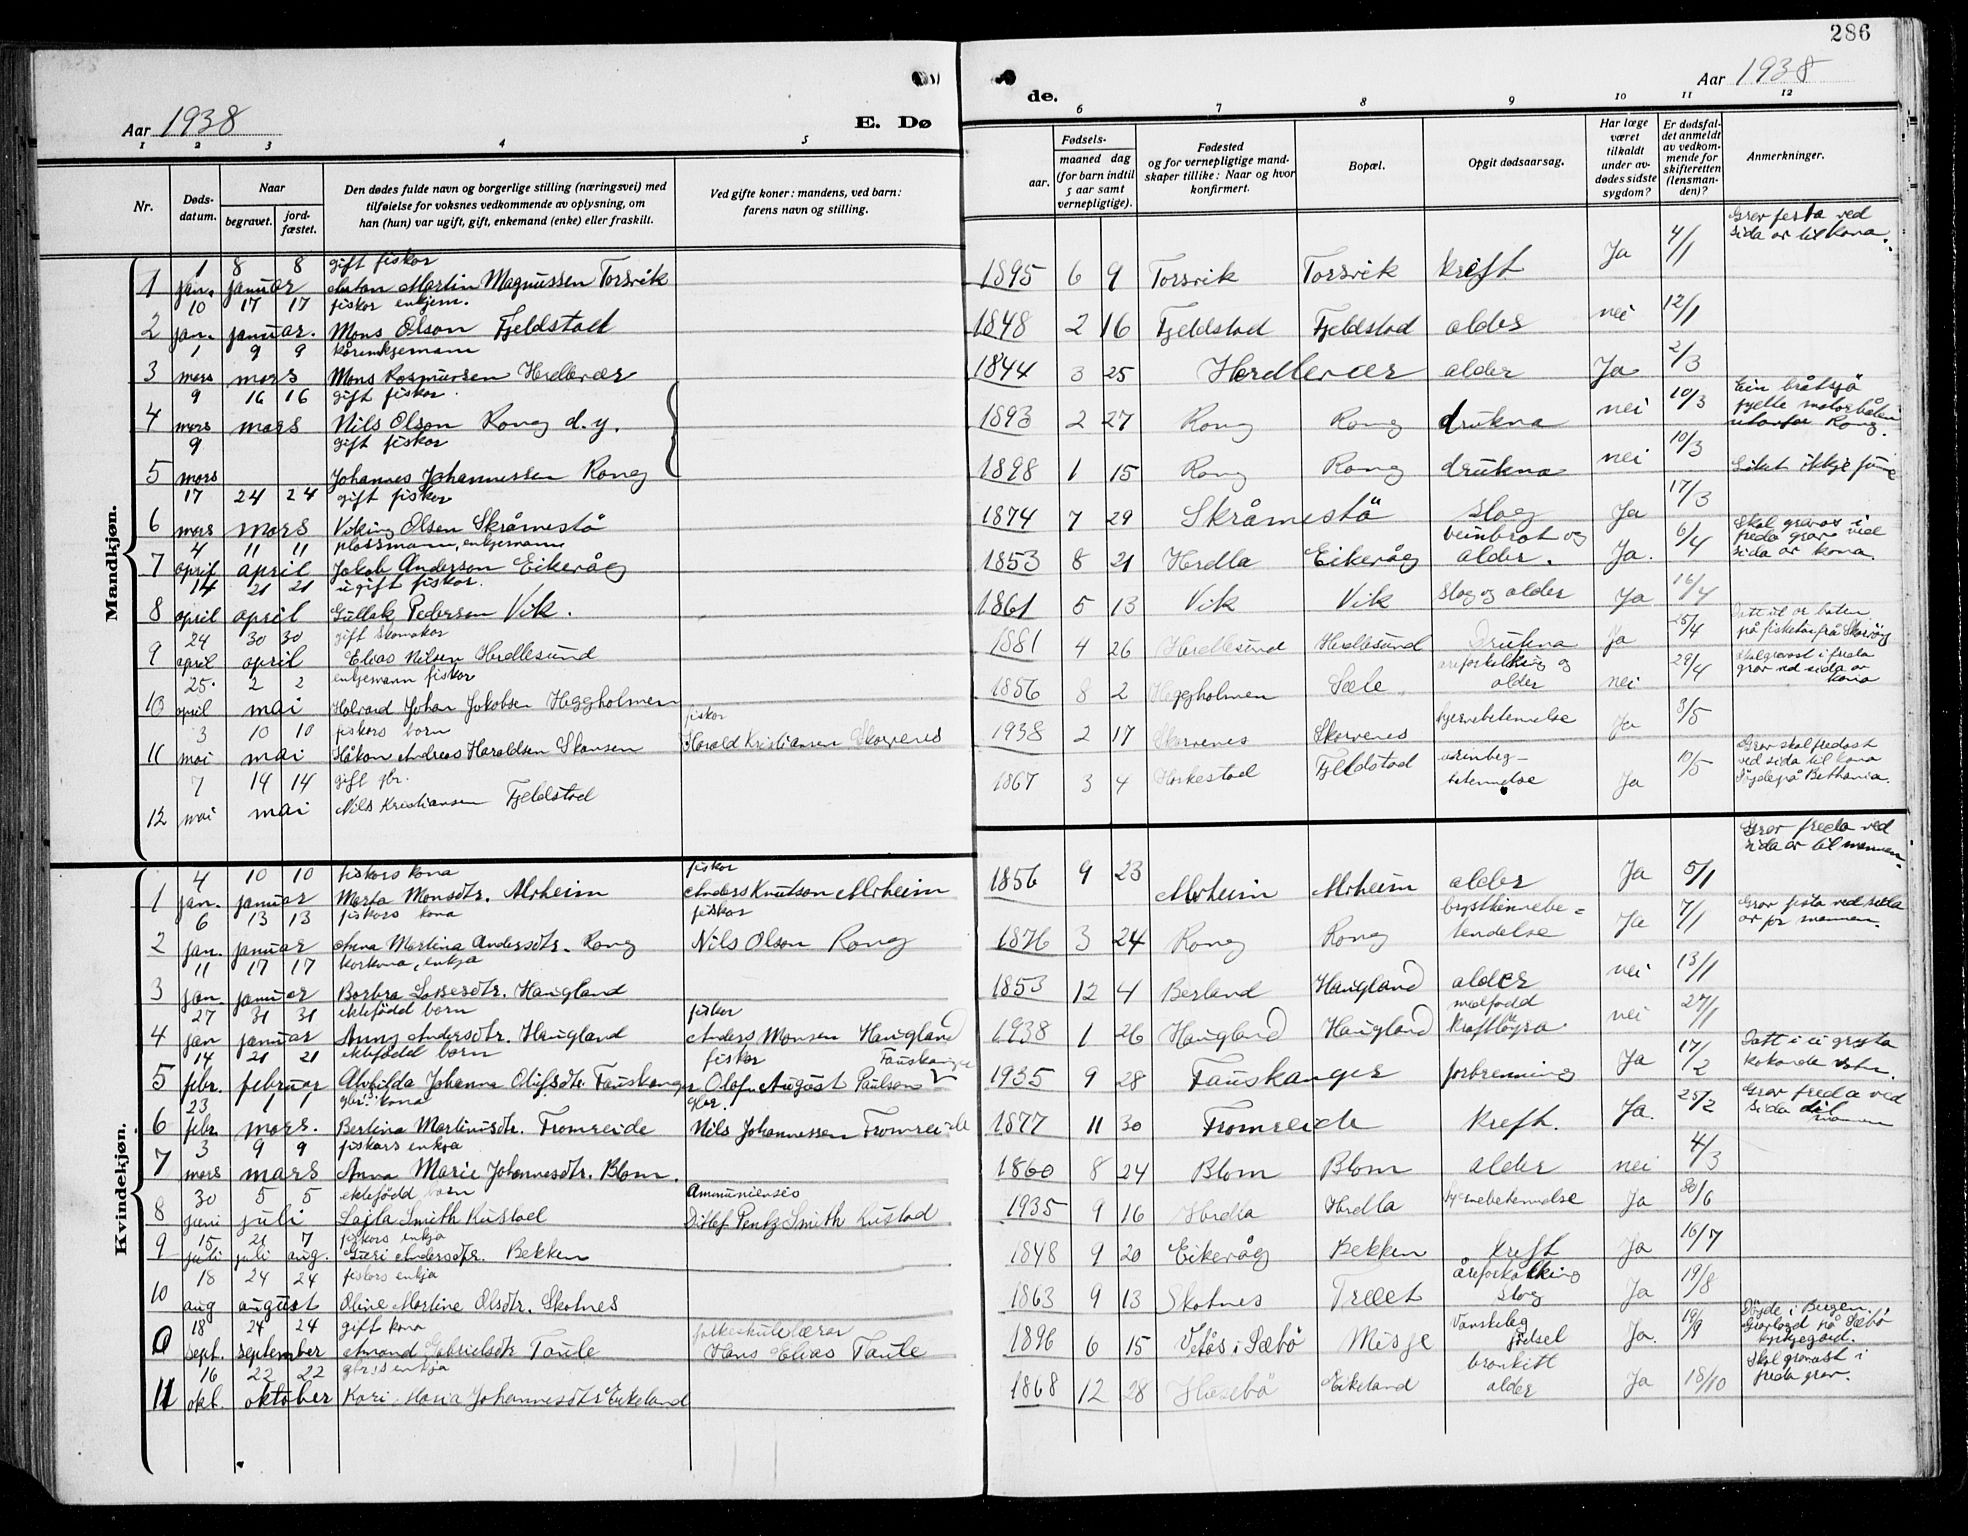 286
Aar 1938
Aar 1938
E. Dø
de.
1 2 3 4 5
6 7 8 9 10 11 12
Nr.
Døds-
datum.
Naar
begravet.
jord-
fæstet.
Den dødes fulde navn og borgerlige stilling (næringsvei) med
tilføielse for voksnes vedkommende av oplysning, om
han (hun) var ugift, gift, enkemand (enke) eller fraskilt.
Ved gifte koner: mandens, ved barn:
farens navn og stilling.
Fødsels-
aar.
maaned dag
(for barn indtil
5 aar samt
vernepligtige).
Fødested
og for vernepligtige mand-
skaper tillike: Naar og hvor
konfirmert.
Bopæl.
Opgit dødsaarsag.
Har læge
været
tilkaldt
under av-
dødes sidste
sygdom?
Er dødsfal-
det anmeldt
av vedkom-
mende for
skifteretten
(lensman-
den)?
Anmerkninger.
Mandkjøn.
1 8 8 gift fiskar
1 jan. januar Anton Martin Magnussen Torsvik 1895 6 9 Torsvik Torsvik kreft Ja 4/1 Grav festa ved sida av til kona.
10 17 17 fiskar enkjem.
2 jan. januar. Mons Olson Fjeldstad 1848 2 16 Fjeldstad Fjeldstad alder nei 12/1
1 9 9 kårenkjemann
3 mars mars Mons Rasmussen Herdlevær 1844 3 25 Herdlevær alder Ja 2/3
9 16 16 gift fiskar.
4 mars mars Nils Olson Rong d.y. 1893 2 27 Rong Rong drukna nei 10/3 Ein bråtsjö fyelte motorbåten utanfor Rong.
9 gift fiskar
5 mars Johannes Johannessen Rong 1898 1 15 Rong Rong drukna nei 10/3 Liket ikkje funne
17 24 24 gift fiskar
6 mars mars Viking Olsen Skråmestö 1874 7 29 Skråmestö slag Ja 17/3
4 11 11 plassmann, enkjemann
7 april april Jakob Anderson Eikevåg 1853 8 21 Herdla Eikevåg beinbrot og alder. Ja. 6/4 Skal gravas i freda grav ved sida av kona.
14 21 21 ugift fiskar.
8 april april Gullak Pederson Vik. 1861 5 13 Vik Vik slag og alder Ja 16/4
24 30 30 gift skomakar
9 april april Elias Nilsen Herdlesund 1881 4 26 Herdlesund Herdlesund Drukna Ja 25/4 Datt ut av båten på fisketur frå
25. 2 2 enkjemann fiskar
10 april mai Halvard Johan Jakobsen Heggholmen 1856 8 2 Heggholmen Sæle åreforkalkning og alder nei 29/4 Skal gravast i freda grav ved sida av kona
3 10 10 fiskars born fiskar
11 mai mai Håkon Andreas Haraldsen Skarvenes Harald Kristiansen Skarvenes 1938 2 17 Skarvenes Skarvenes hjernebetennelse Ja 3/5
7 14 14 gift gbr.
12 mai mai Nils Kristiansen Fjeldstad 1867 3 4 Fjeldstad betennelse Ja 10/5 Grav skal fredast ved sida til kona Döyde på Bethania.
Kvindekjøn.
4 10 10 fiskars kona fiskar
1 jan. januar Marta Monsdtr. Alvheim Anders Knutson Alvheim 1856 9 23 Alvheim Alvheim alder Ja 5/1 Grav freda ved sida av til mannen.
6 13 13 fiskars kona fiskar
2 jan. januar Anna Martina Andersdtr. Rong Nils Olson Rong 1876 3 24 Rong Rong brysthinnebetendelse Ja 7/1 Grav festa ved sida av for mannen.
11 17 17 kårkona, enkja
3 jan. januar Barbra Lassesdtr. Haugland 1853 12 4 Berland Haugland alder nei 13/1
27 31 31 ektefödd born fiskar
4 jan januar Anny Andersdtr. Haugland Anders Monsen Haugland 1938 1 26 Haugland Haugland malfödd kraftlöysa nei 27/1
14 21 21 ektefödd born fiskar
5 febr. februar Alvhilda Johanna Olufsdtr. Fauskanger Olaf August Paulson Fauskanger 1935 9 28 Fauskanger forbrenning Ja 17/2 Datt i ei gryta kokande vatn.
23 1 1 gbr.s kona gbr.
6 febr. mars. Bertina Martinusdtr. Fromreide Nils Johannessen Fromreide 1877 11 30 Fromreide kreft. Ja. 25/2 Grav freda ved sida til mannen
3 9 9 fiskars enkja
7 mars mars Anna Marie Johannesdtr. Blom. 1860 8 24 Blom Blom alder nei 4/3
30 5 5 ektefödd born
8 juni juli Laila Smith Kustad Ditlef Pentz Smith Kustad 1935 9 16 Herdla Herdla hjernebetennelse Ja 30/6
15 21 7 fiskars enkja
9 juli juli aug. Guri Andersdtr. Bekken 1848 9 20 Eikevåg Bekken kreft Ja 16/7
18 24 24 fiskars enkja
10 aug august Oline Martine Olsdtr. Skotnes 1863 9 13 Skotnes Træet åreforkalking slag Ja 19/8
18 24 24 gift kona folkeskulelærar
sept. september Amanda Gabrielsdtr Taule Hans Elias Taule 1896 6 15 Vetås i Sæbö Misje Vanskeleg födsel Ja. 19/9 Döyde i Bergen. Gravlagd på Sæbö kyrkjegard.
16 22 22 gbr.s enkja
11 okt. oktober Kari Maria Johannesdtr Eikeland 1868 12 28 Husebö Eikeland bronkitt alder Ja 18/10 Skal gravast i freda grav.